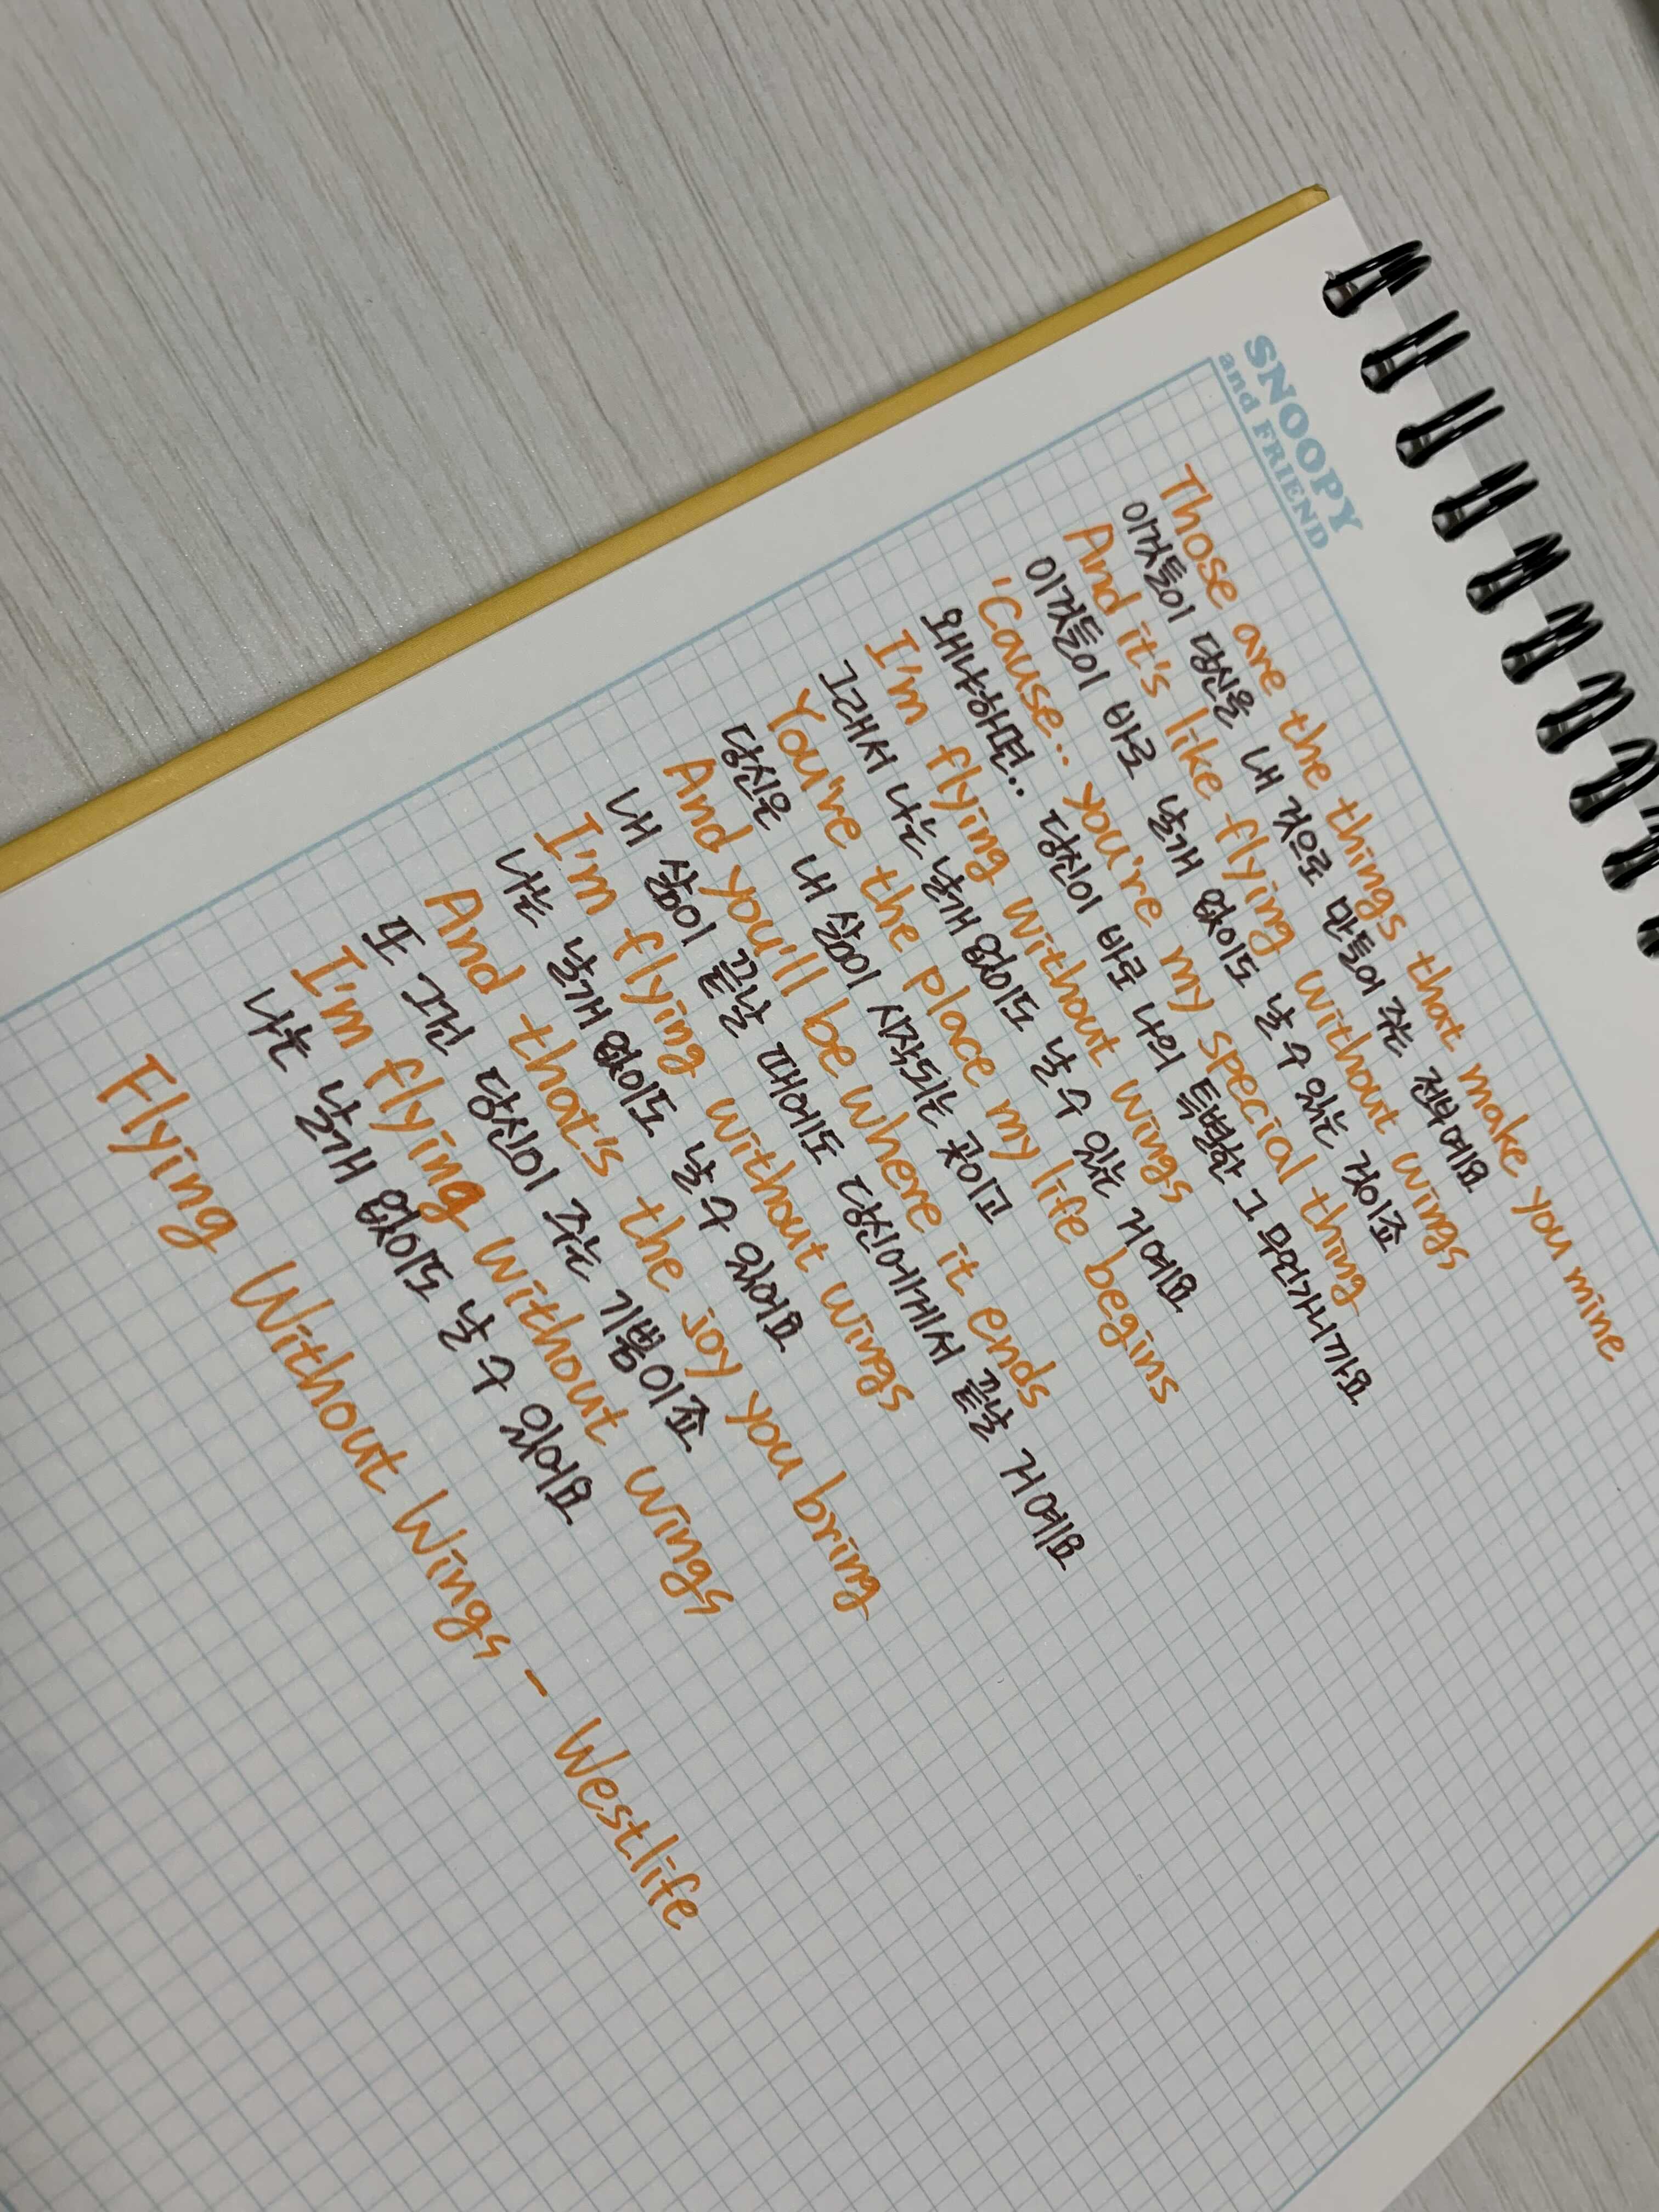 SNOOPY
and FRIEND
Those are the things that make you mine
이것들이 당신을 내 것으로 만들어 주는 전부예요
And it's like flying without wings
이것들이 바로 날개 없이도 날 수 있는 것이죠
'Cause.. you're my special thing
왜냐하면.. 당신이 바로 나의 특별한 그 무언가니까요
I'm flying without wings
그래서 나는 날개 없이도 날 수 있는 거예요
You're the place my life begins
당신은 내 삶이 시작되는 곳이고
And you'll be where it ends
내 삶이 끝날 때에도 당신에게서 끝날 거예요
I'm flying without wings
나는 날개 없이도 날 수 있어요
And that's the joy you bring
또 그건 당신이 주는 기쁨이죠
I'm flying without wings
나는 날개 없이도 날 수 있어요
Flying Without Wings - Westlife